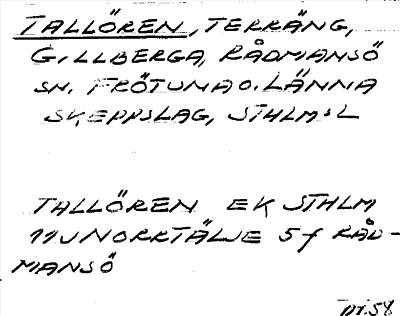 TALLÖREN, TERRÄNG,
GILLBERGA, RÅDMANSÖ
SN. FRÖTUNA O. LÄNNA
SKEPPSLAG, STHLMS L
TALLÖREN EK STHLM
11J NORRTÄLJE 5f RÅD-
MANSÖ
58